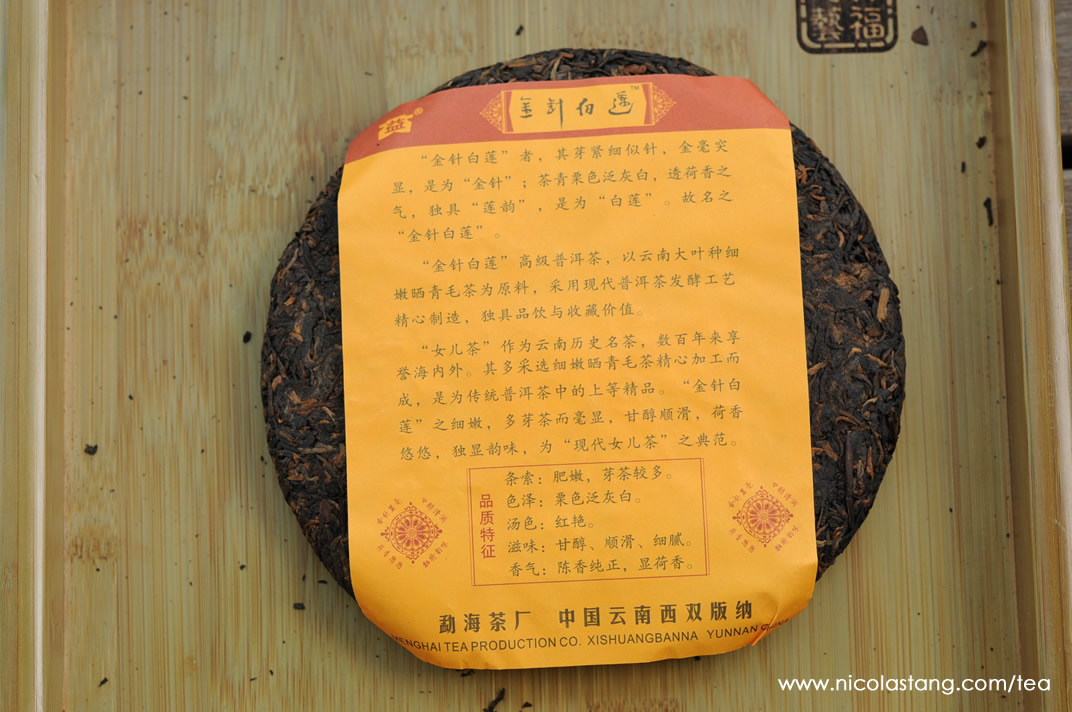 藝 福
益®
金针白莲™
“金针白莲”者，其芽紧细似针，金毫突
显，是为“金针”；茶青栗色泛灰白，透荷香之
气，独具“莲韵”，是为“白莲”。故名之
“金针白莲”。
“金针白莲”高级普洱茶，以云南大叶种细
嫩晒青毛茶为原料，采用现代普洱茶发酵工艺
精心制造，独具品饮与收藏价值。
“女儿茶”作为云南历史名茶，数百年来享
誉海内外。其多采选细嫩晒青毛茶精心加工而
成，是为传统普洱茶中的上等精品。“金针白
莲”之细嫩，多芽茶而毫显，甘醇顺滑，荷香
悠悠，独显韵味，为“现代女儿茶”之典范。
品质特征
条索：肥嫩，芽茶较多。
色泽：栗色泛灰白。
汤色：红艳。
滋味：甘醇、顺滑、细腻。
香气：陈香纯正，显荷香。
勐海茶厂 中国云南西双版纳
MENGHAI TEA PRODUCTION CO. XISHUANGBANNA YUNNAN CHINA
www.nicolastang.com/tea